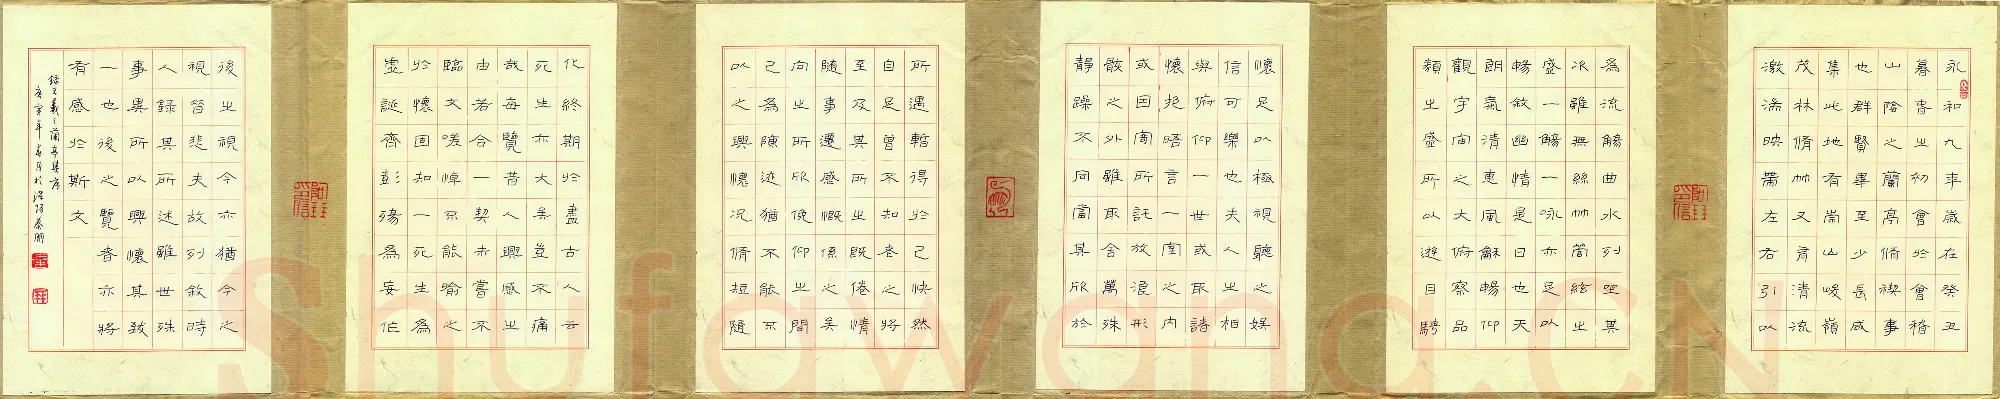 永和九年歲在癸丑
暮春之初會於會稽
山陰之蘭亭脩禊事
也群賢畢至少長咸
集此地有崇山峻嶺
茂林脩竹又有清流
激湍映帶左右引以
為流觴曲水列坐其
次雖無絲竹管絃之
盛一觴一詠亦足以
暢敘幽情是日也天
朗氣清惠風龢暢仰
觀宇宙之大俯察品
類之盛所以遊目騁
懷足以極視聽之娛
信可樂也夫人之相
與俯仰一世或取諸
懷抱晤言一室之內
或因寄所託放浪形
骸之外雖取舍萬殊
靜躁不同當其欣於
所遇暫得於己快然
自足曾不知老之將
至及其所之既倦情
隨事遷感慨係之矣
向之所欣俛仰之間
已為陳迹猶不能不
以之興懷況脩短隨
化終期於盡古人云
死生亦大矣豈不痛
哉每覽昔人興感之
由若合一契未嘗不
臨文嗟悼不能喻之
於懷固知一死生為
虛誕齊彭殤為妄作
後之視今亦猶今之
視昔悲夫故列敘時
人錄其所述雖世殊
事異所以興懷其致
一也後之覽者亦將
有感於斯文
錄王羲之蘭亭集序
庚寅年春月於洛陽
Shufawang.CN